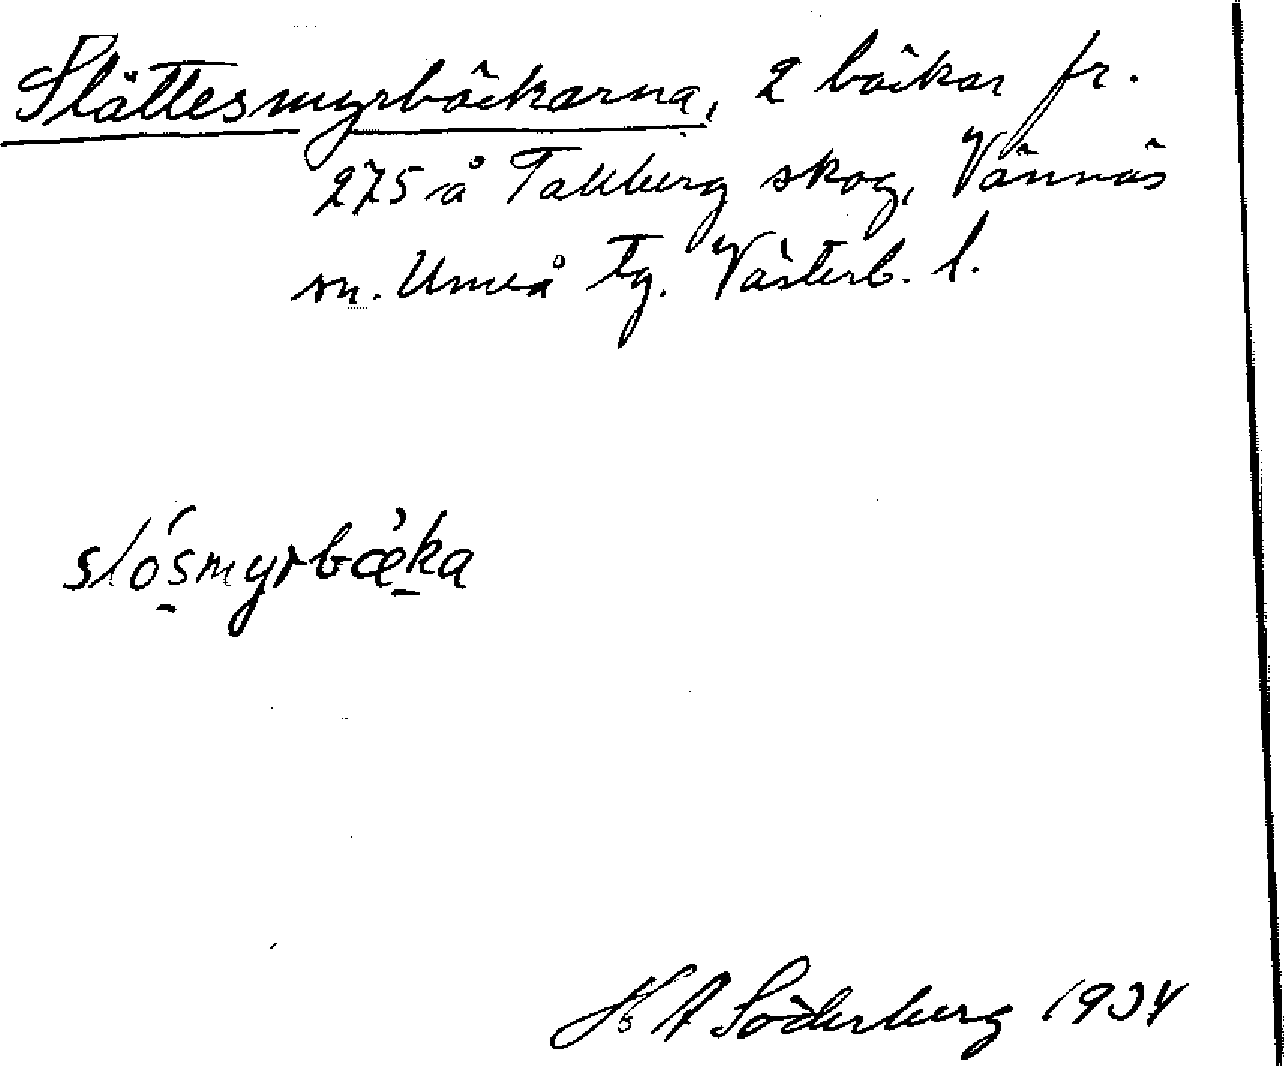 Slåttesmyrbäckarna, 2 bäckar fr.
275 å Tallberg skog, Vännäs
sn. Umeå tg. Västerb. l.
slósmyrbæ̀ka
K A Söderberg 1934